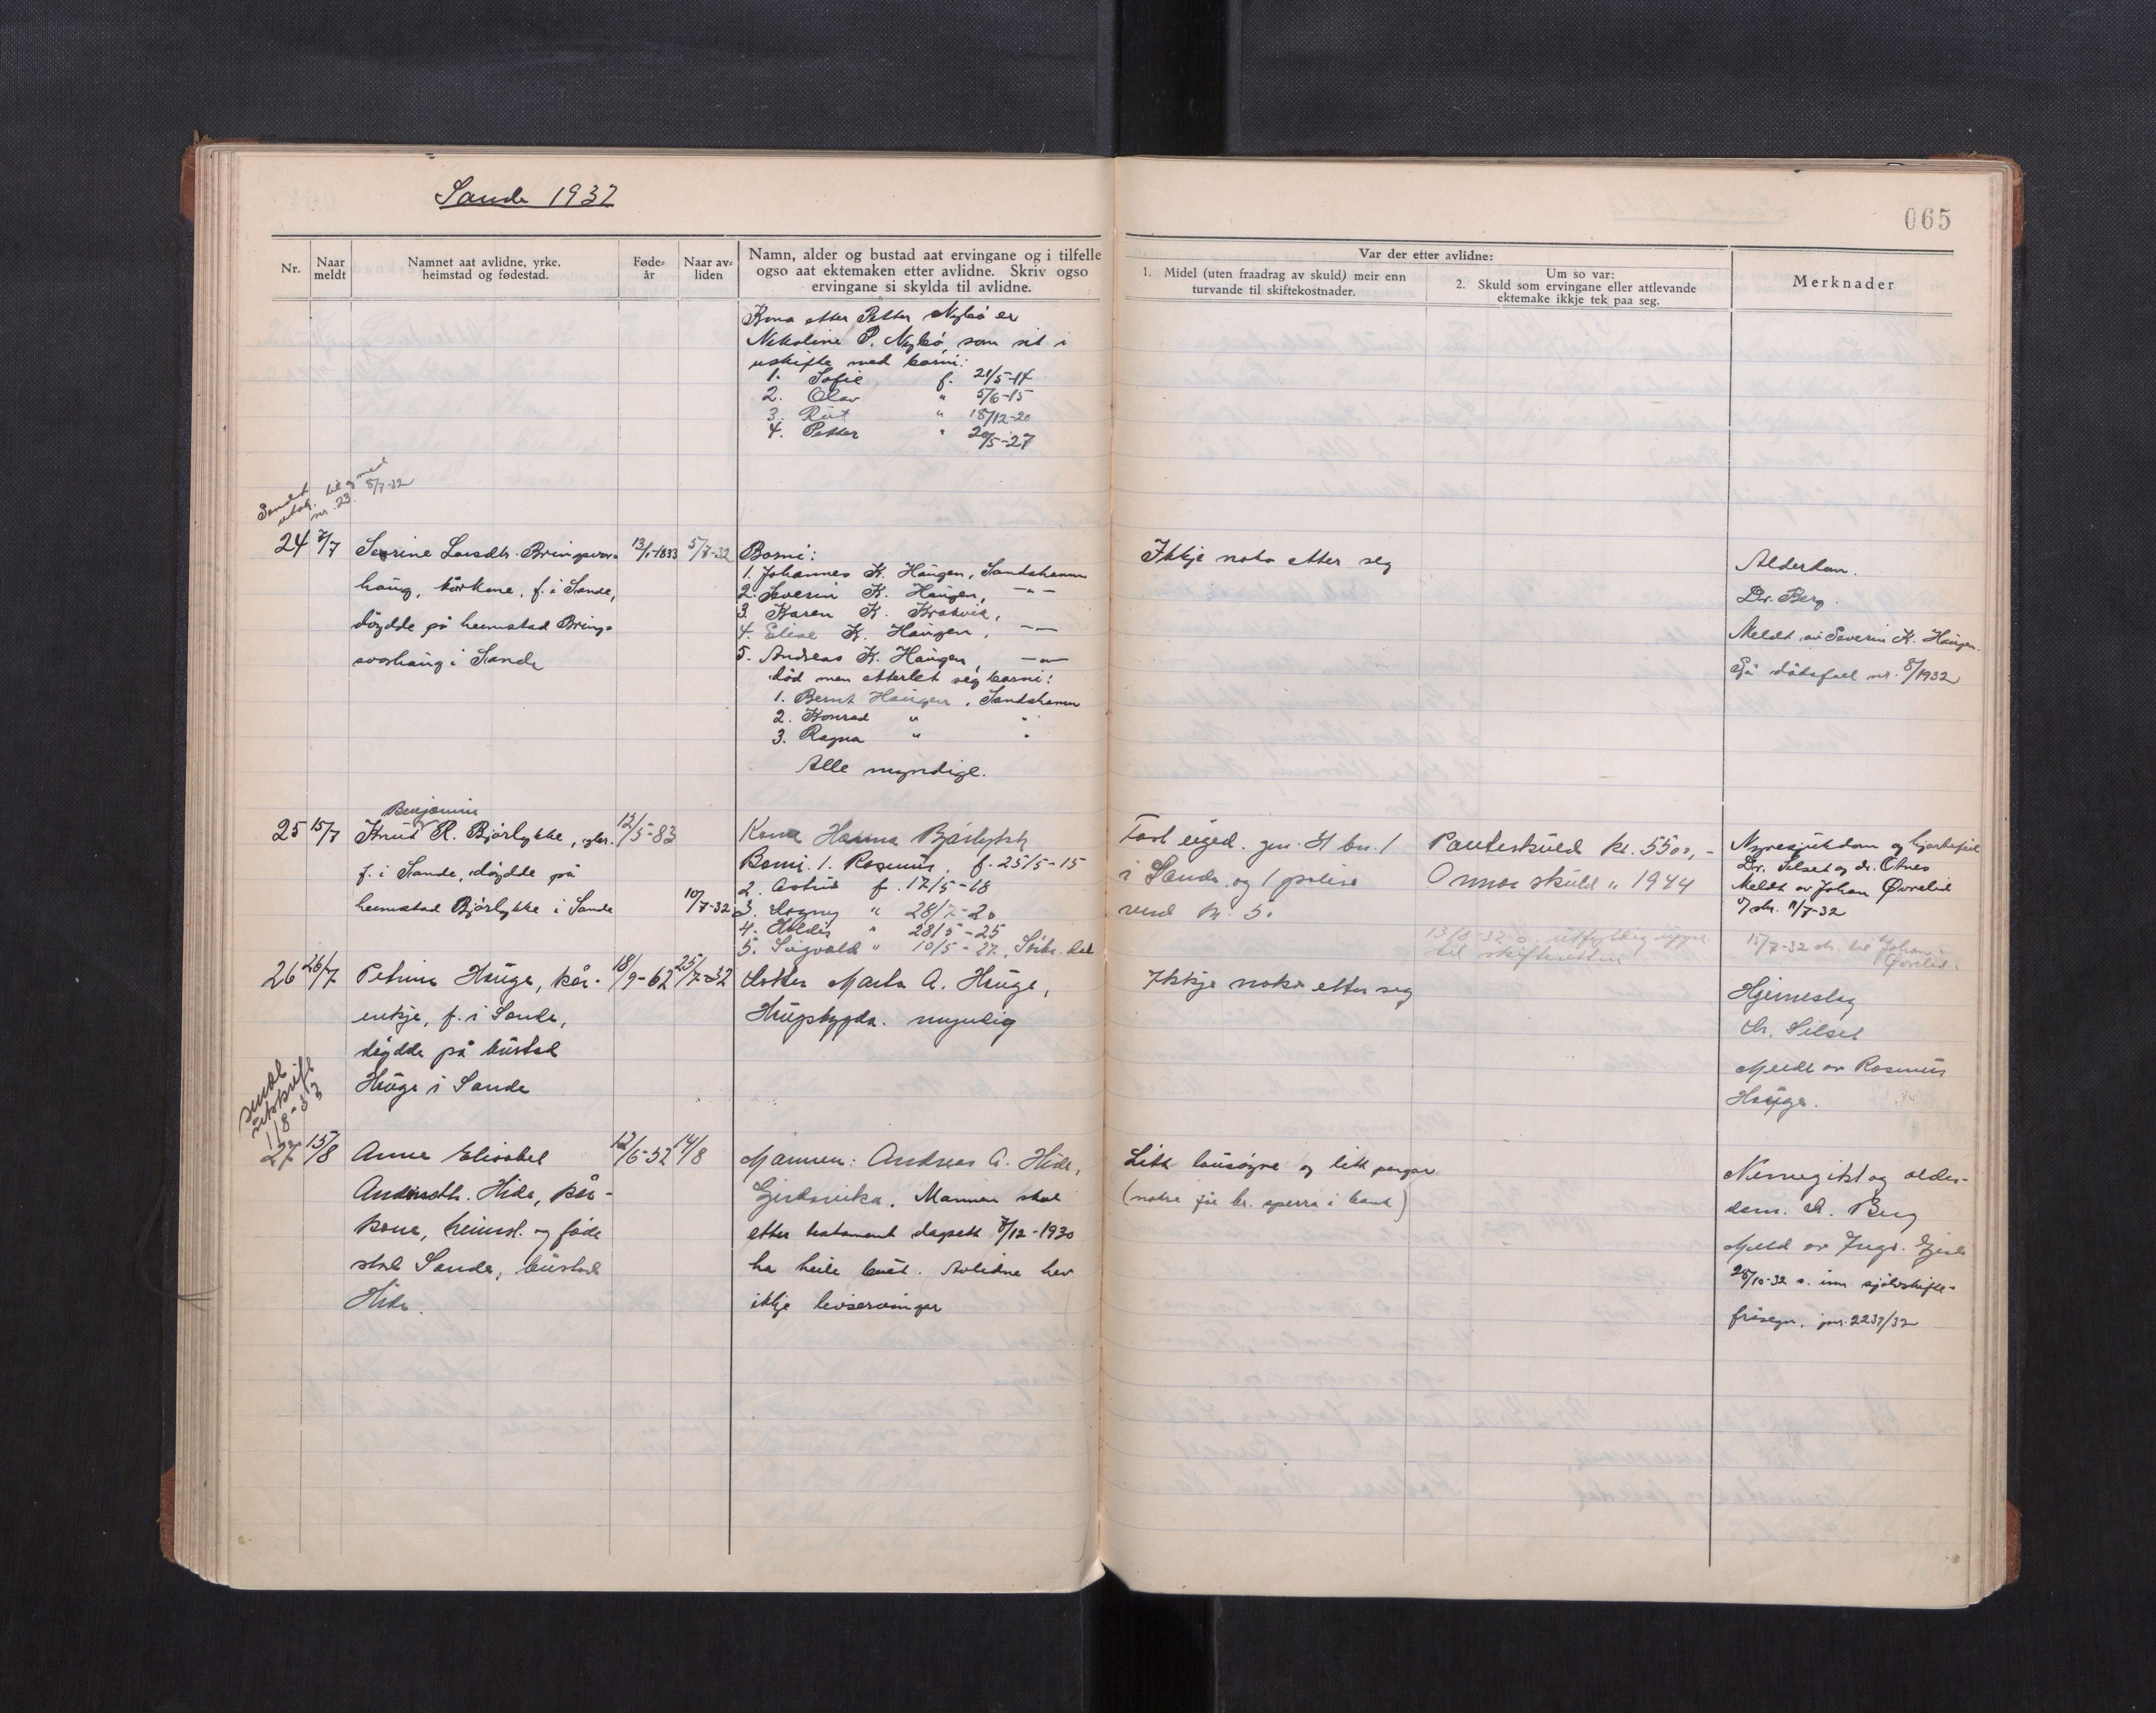 Sande 1932
065
Nr.
Naar meldt
Namnet aat avlidne, yrke, heimstad og fødestad.
Føde-år
Naar av-liden
Namn, alder og bustad aat ervingane og i tilfelle
ogso aat ektemaken etter avlidne. Skriv ogso
ervingane si skylda til avlidne.
Var der etter avlidne:
1. Midel (uten fraadrag av skuld) meir enn
turvande til skiftekostnader.
Um so var:
2. Skuld som ervingane eller attlevande
ektemake ikkje tek paa seg.
Merknader
Kona etter Petter Nybø er
Nikoline P. Nybø, som sit i
uskifte med borni:
1. Sofie f. 21/5-14
2. Olav " 5/6-15
3. Rut " 18/12-20
4. Petter " 20/5-27
Sendt utskr. til og med
nr. 23. 8/7-32
24 7/7 Serine Larsdtr. Bringsvor- 13/1-1833 5/7-32
haug, kårkone, f. i Sande,
døydde på heimstad Brings-
vorhaug i Sande
Borni:
1. Johannes K. Haugen, Sandshamn
2. Severin K. Haugen, -"-
3. Karen K. Krakvik,
4. Elise K. Haugen, -"-
5. Andreas K. Haugen, -"-
död men etterlet seg borni:
1. Bernt Haugen, Sandshamn
2. Konrad " "
3. Ragna " "
Alle myndige.
Ikkje noko etter seg
Alderdom.
Dr. Berg.
Meldt av Severin K. Haugen.
Sjå dödsfall nr. 8/1932
25 15/7 Knut Benjamin R. Bjørlykke, gbr. 12/5-83
f. i Sande, døydde på
heimstad Bjørlykke i Sande 10/7-32
Kona Hanna Bjørlykke
Borni. 1. Rasmus, f. 25/5-15
2. Astrid f. 17/5-18
3. Magny " 28/7-20
4. Haldis " 28/5-25
5. Sigvald " 10/5-27,
Fast eiged. gnr. 41 bn. 1
i Sande og 1 polise
verd kr. 50
Panteskuld kr. 5500,-
Annor skuld " 1944
13/8-32 s. utfyllig uppg.
til skifteretten
Nyresjukdom og hjartefeil
Dr. Silset og dr. Otnes
Meldt av Johan Øvrelid
v/ skr. 11/7-32
15/7-32 skr. til Johan
Øvrelid.
26 26/7 Petrine Hauge, kår- 18/9-62 25/7-32
enkje, f. i Sande,
døydde på bustad
Hauge i Sande
Dotter Marta A. Hauge,
Haugsbygda. myndig
Ikkje noko etter seg
Hjerneslag
dr. Silset
Meldt av Rasmus
Hauge.
sendt
utskrift
1/8-33
27 15/8 Anne Elisabet 12/6-52 14/8
Andersdtr. Hide, kår-
kone, heimst. og føde
stad Sande, bustad
Hide.
Mannen: Andreas A. Hide,
Gjerdsvika. Mannen skal
etter testament dagsett 8/12-1930
ha heile buet. Avlidne hev
ikkje livservingar
Litt lausøyre og litt pengar
(nokre få kr. sperra i bank)
Nervegikt og alder-
dom. dr. Berg
Meld av Ingv. Gjerde
28/10-32 s. inn sjølvskifte-
fråsegn, jnr. 2237/32